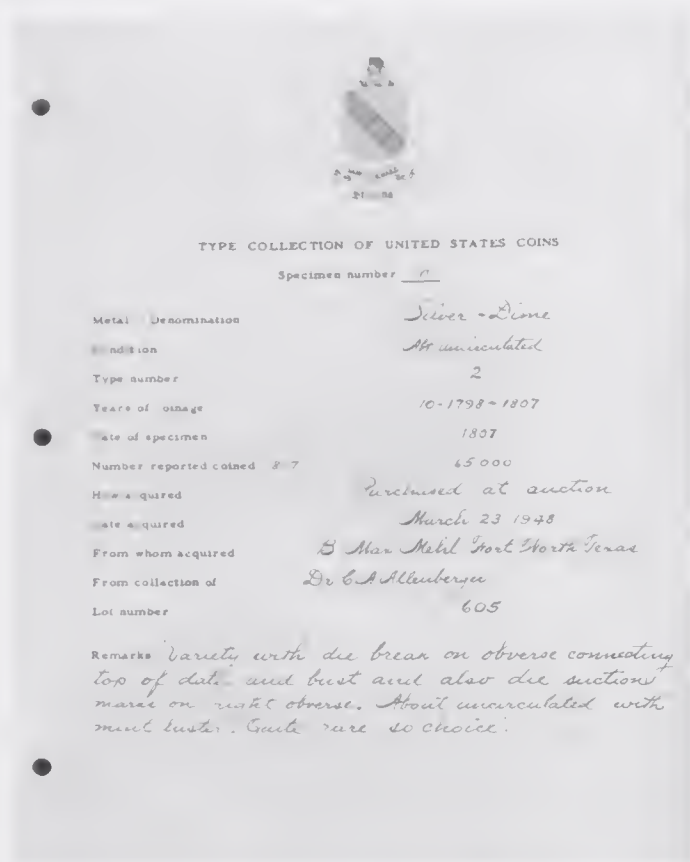 TYPE COLLECTION OF UNITED STATES COINS
Specimen number
Metal Denomination Silver - Dime
Condition Abt uncirculated
Type number 2
Years of coinage 10-1798-1807
Date of specimen 1807
Number reported coined 65000
How acquired Purchased at auction
Date acquired March 23 1948
From whom acquired B Max Mehl Fort Worth Texas
From collection of Dr C A Allenberger
Lot number 605
Remarks Variety with die break on obverse connecting
top of date and bust and also die suction
marks on right obverse. About uncirculated with
mint luster. Quite rare so choice.